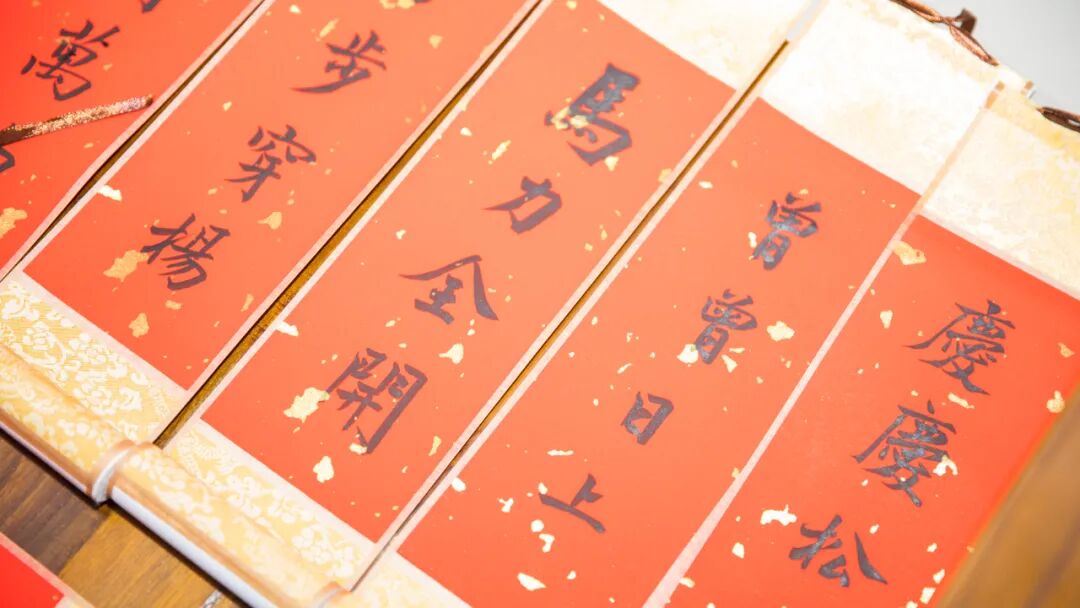 慶慶松
曾曾日上
馬力全開
步穿楊
萬